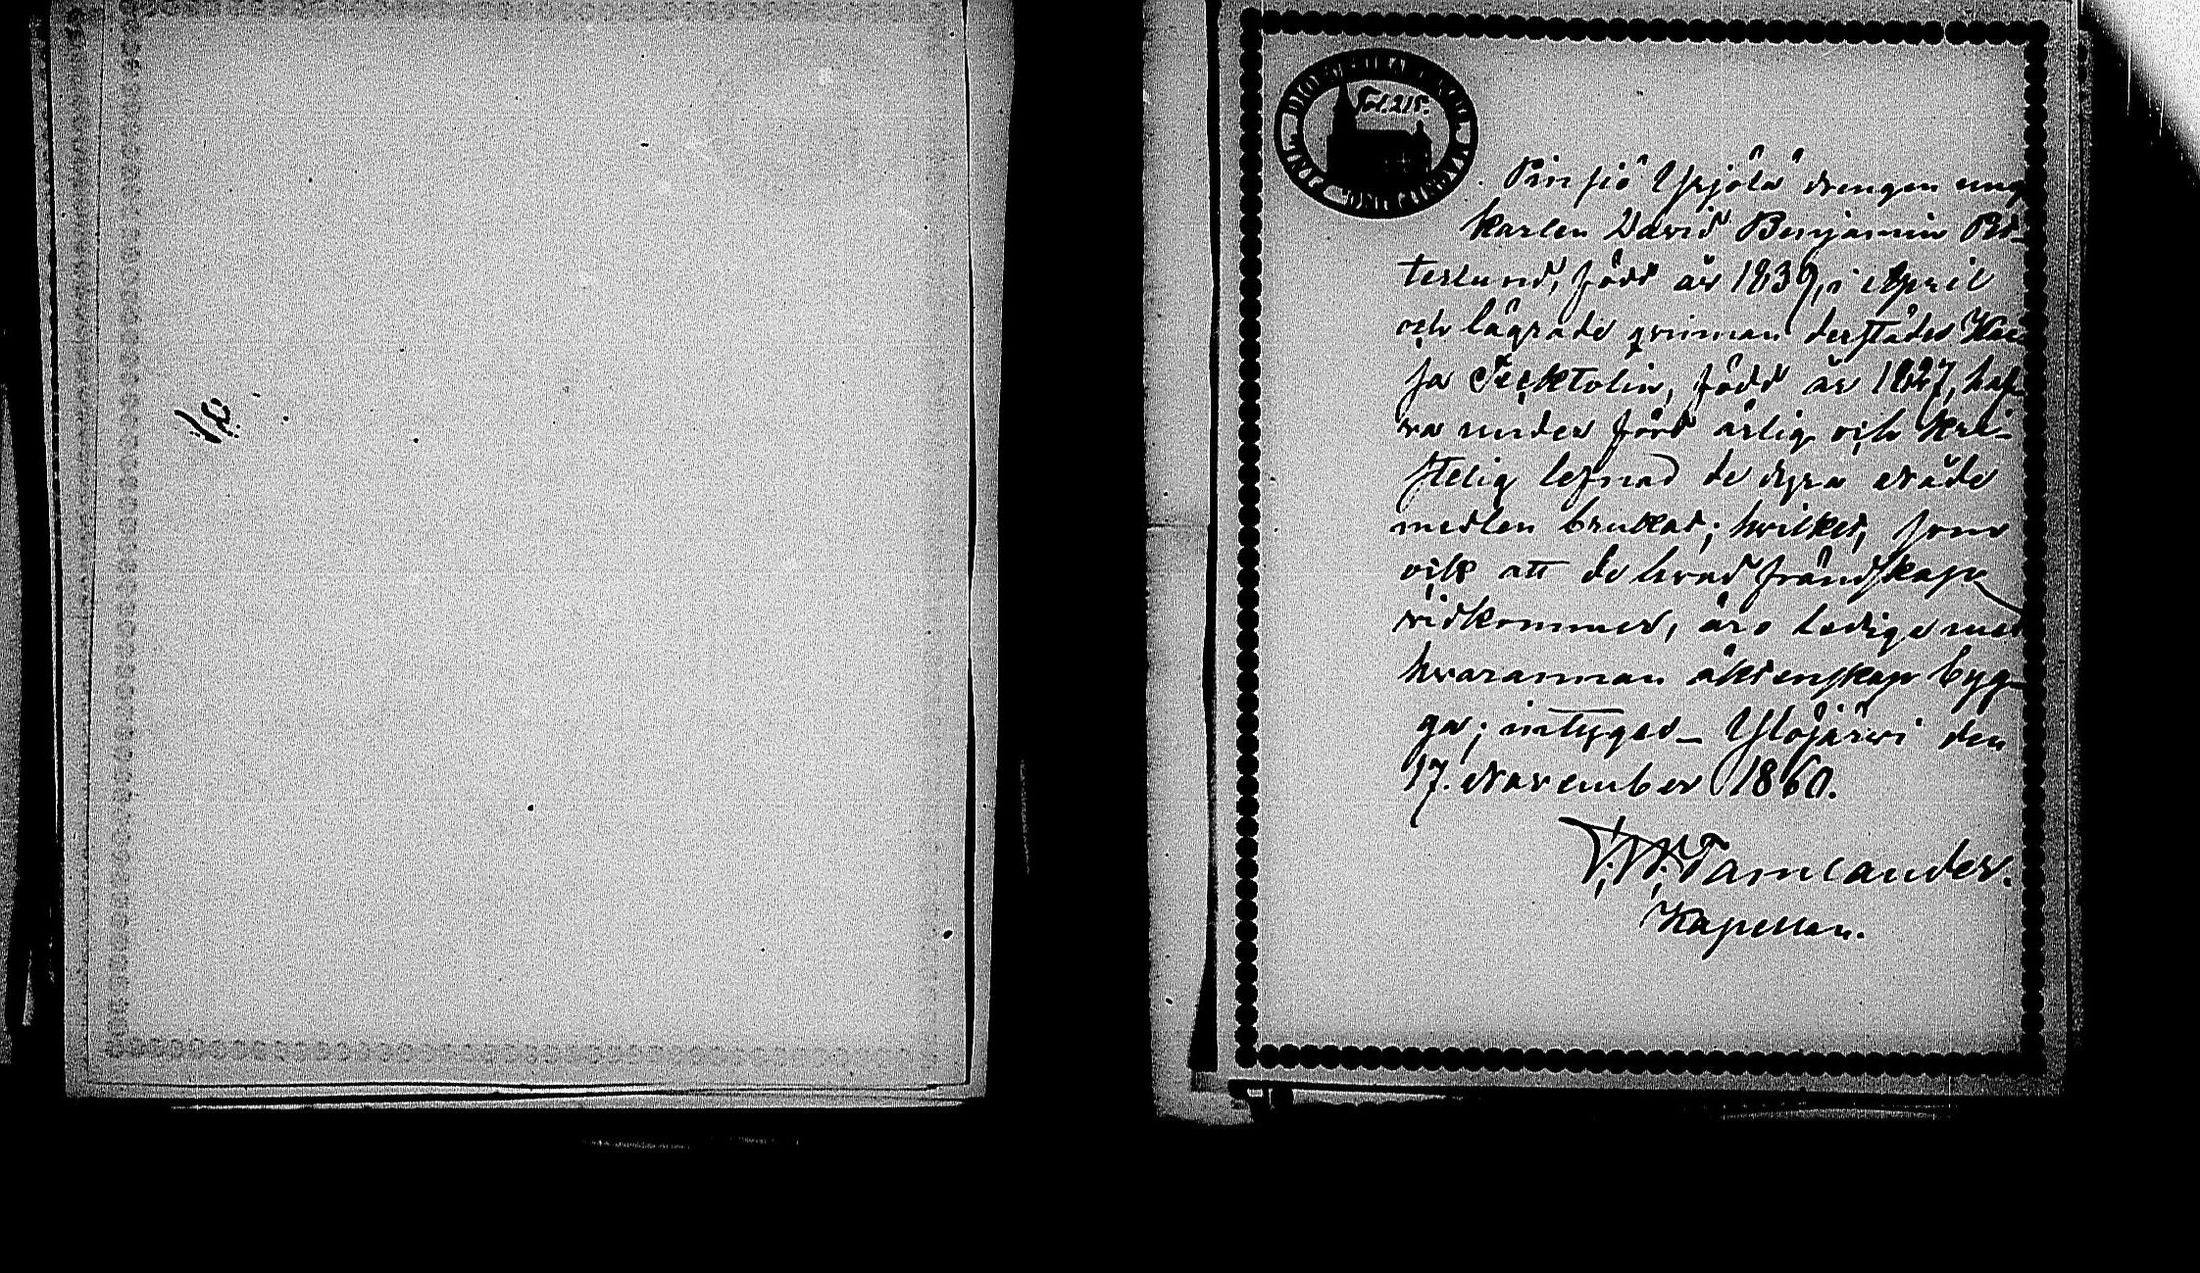 Fol. 215.
Pinsiö Yrjölä drengen ung
karlen David Benjamin Pet-
terlund, född år 1839, i April
och lägrade qvinnan derstädes Kai
sa Tecktolin, född år 1827, haf
va under förd ärlig och kri-
stelig lefnad de dyra nåde
medlen brukat; hvilket, som
ock att de hvad frändskap
vidkommer, äro ledige med
hvarannan äktenskap byg-
ga; intygar_ Ylöjärvi den
17. November 1860.
Tamlander.
Kapellan.